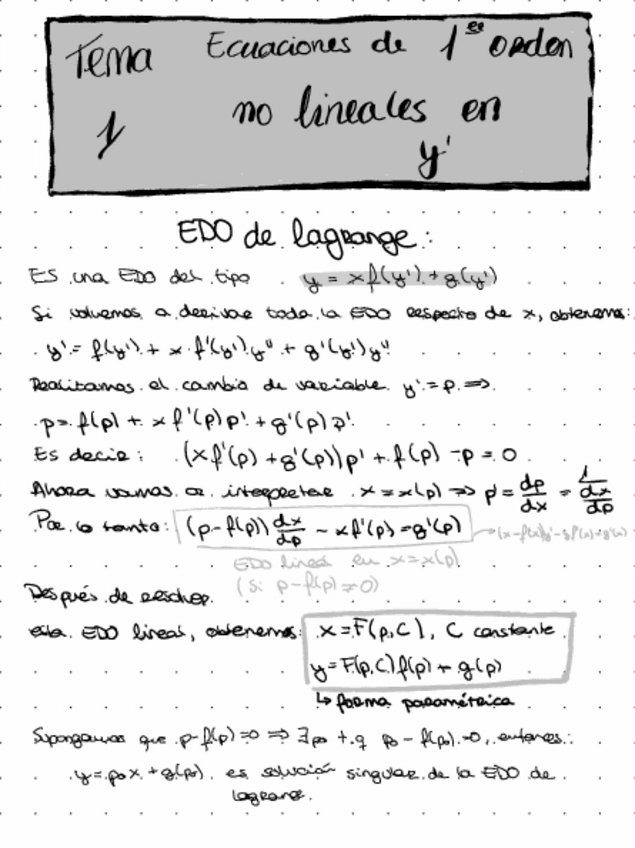 Tema 1
Ecuaciones de 1er orden
no lineales en
y'
EDO de lagrange:
ES una EDO del tipo y = x f(y') + g(y')
Si volvemos a derivar toda la EDO respecto de x, obtenemos:
y' = f(y') + x f'(y') y'' + g'(y') y''
Realizamos el cambio de variable y' = p ⇒
p = f(p) + x f'(p) p' + g'(p) p'
Es decir: (x f'(p) + g'(p)) p' + f(p) - p = 0
Ahora vamos a interpretar x = x(p) ⇒ p' = dp/dx = 1/(dx/dp)
Por lo tanto: (p - f(p)) dx/dp - x f'(p) = g'(p)
EDO lineal en x = x(p)
(Si p - f(p) ≠ 0)
Después de resolver
esta EDO lineal, obtenemos: x = F(p, C), C constante
y = F(p, C) f(p) + g(p)
↳ forma paramétrica
Supongamos que p - f(p) = 0 ⇒ ∃ p₀ t.q p₀ - f(p₀) = 0, entonces:
y = p₀ x + g(p₀) es solución singular de la EDO de
lagrange.